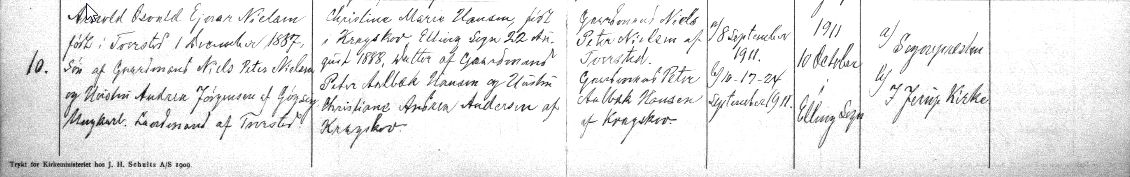 10.
Arnold Osvald Ejnar Nielsen
født i Torsted 1 December 1887,
Søn af Gaardmand Niels Peter Nielsen
og Hustru Andrea Jørgensen af
Ungkarl. Landmand af Torsted.
Christine Marie Hansen, født
i Kragskov Elling Sogn 22 Au-
gust 1888, Datter af Gaardmand
Peter Aalbæk Hansen og Hustru
Christiane Andrea Andersen af
Kragskov.
Gaardmand Niels
Peter Nielsen af
Torsted.
Gaardmand Peter
Aalbæk Hansen
af Kragskov
a/ 8 September
1911.
b/ 10-17-24
September 1911.
1911
10 October
Elling Sogn
a/ Sognepræsten
b/
I Jerup Kirke
Trykt for Kirkeministeriet hos J. H. Schultz A/S 1909.